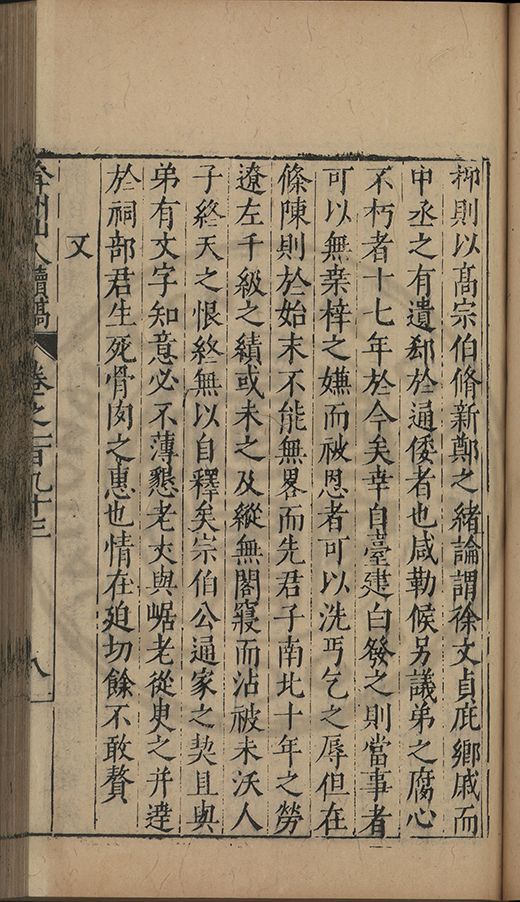 抑則以髙宗伯脩新鄭之緒論謂徐文貞庇鄉戚而
中丞之有遺郄於通倭者也咸勒候另議弟之腐心
不朽者十七年於今矣幸自臺建白發之則當事者
可以無桒梓之嫌而被恩者可以洗丐乞之辱但在
條陳則於始末不能無畧而先君子南北十年之勞
遼左千級之績或未之及縱無閣寢而沾被未沃人
子終天之恨終無以自釋矣宗伯公通家之契且與
弟有文字知意必不薄懇老丈與崌老從臾之并逹
於祠部君生死骨肉之惠也情在廹切餘不敢贅
又
弇州山人續稿 卷之一百九十三 八